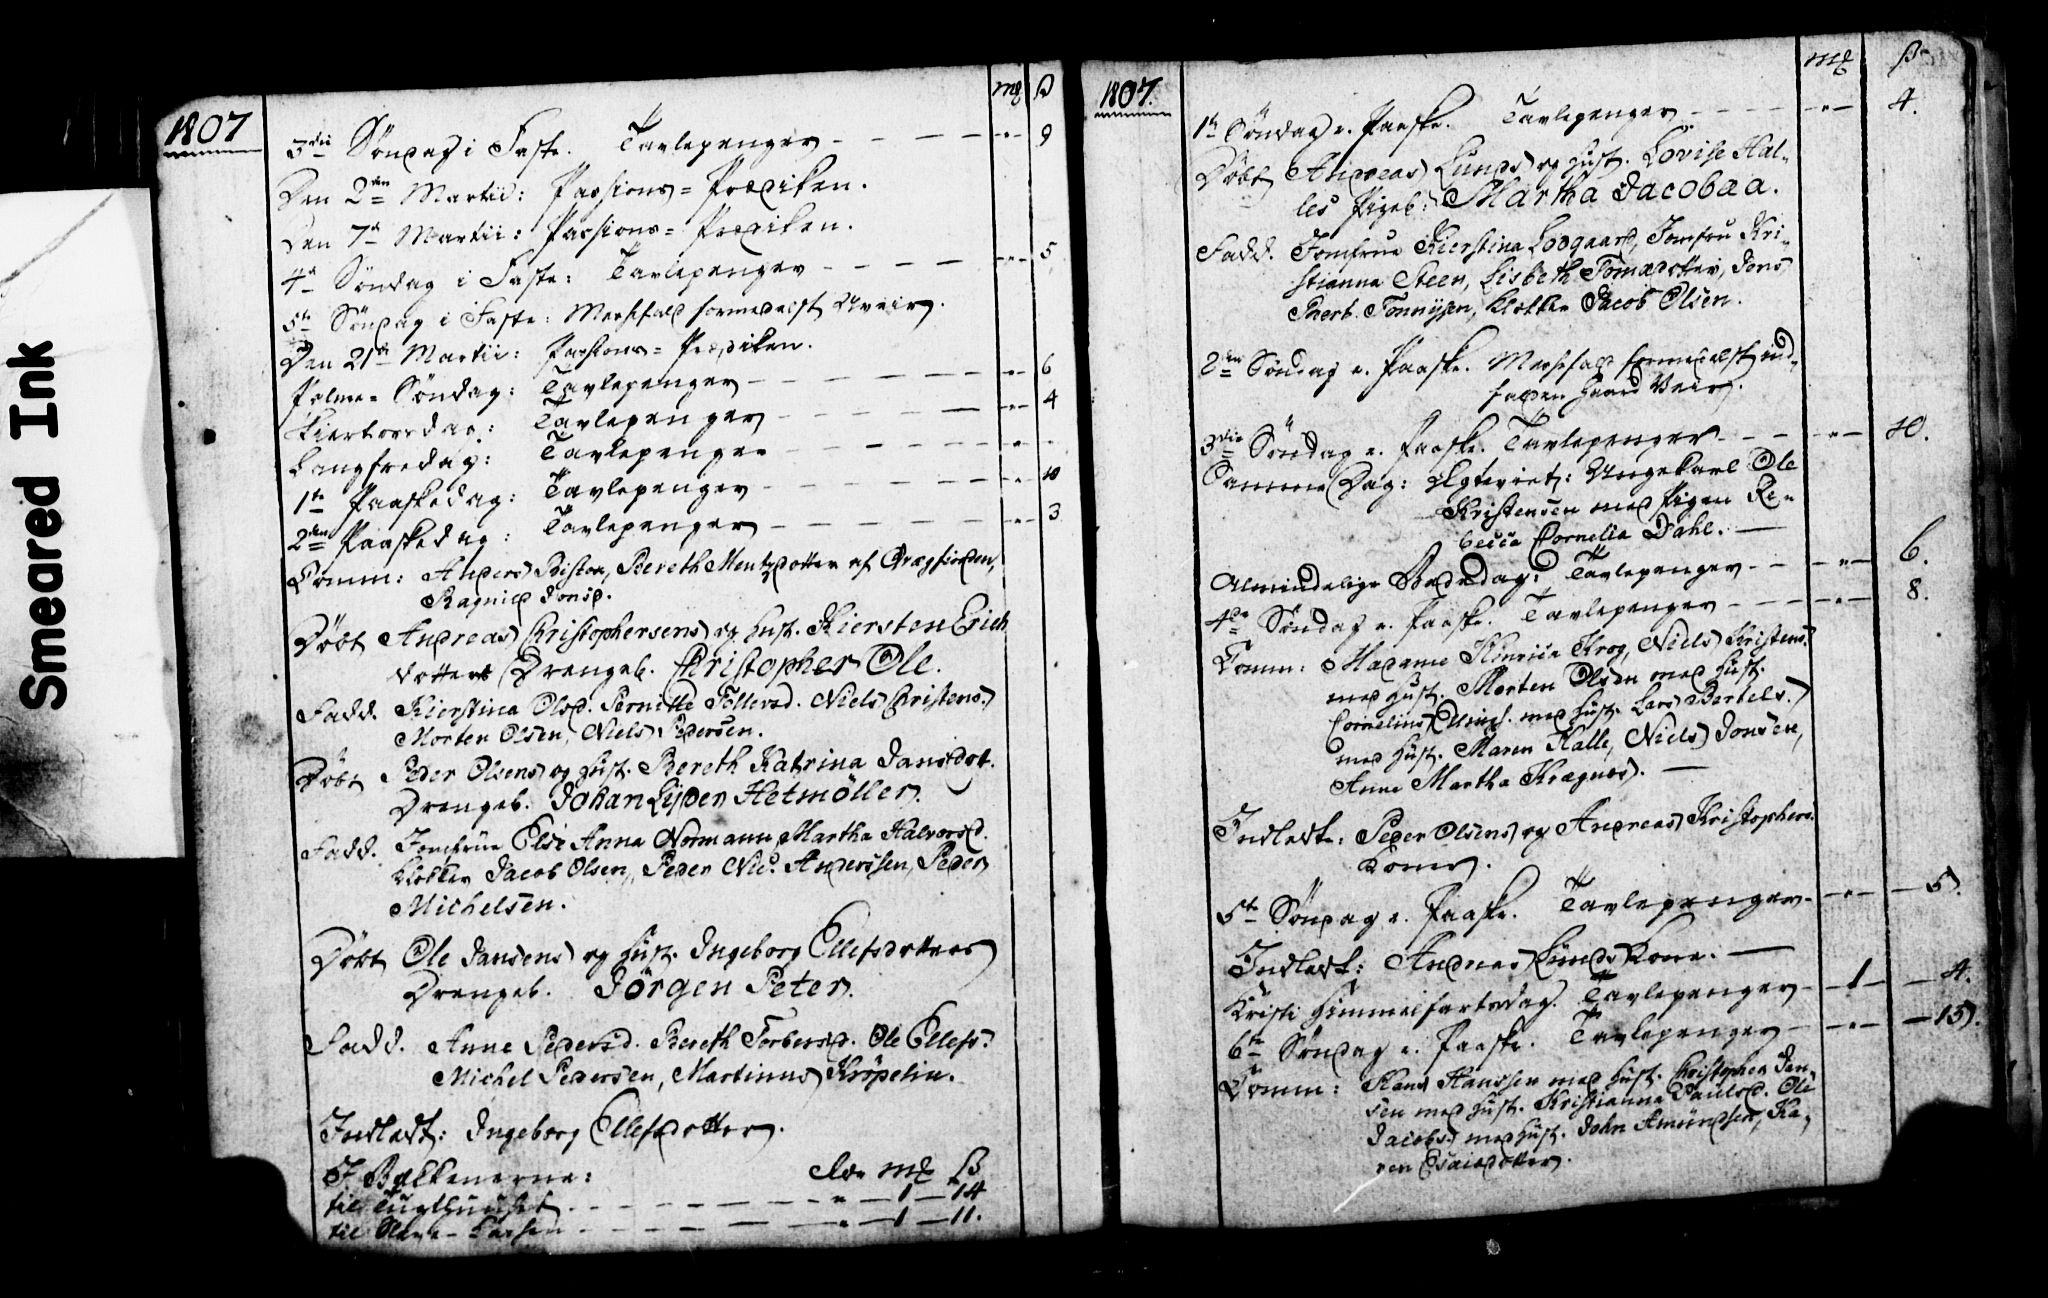 Smeared Ink
1807
m₰ ß
3die Søndag i Faste. Tavlepenger - - - - 9
Den 2den Martii: Passions= Prædiken.
Den 7de Martii: Passions= Prædiken.
4de Søndag i Faste: Tavlepenger - - - - 5
5te Søndag i Faste: Messefald formedelst Uveir.
Den 21de Martii: Passions= Prædiken.
Palme= Søndag: Tavlepenger - - - - 6
Skiertorsdag: Tavlepenger - - - - 4
Langfredag: Tavlepenger - - - -
1te Paaskedag: Tavlepenger - - - - 10
2den Paaskedag: Tavlepenger - - - - 3
Comm: Anders Bistor, Bereth Mentzdotter af
Ragnild Jonsd.
Døbt Andreas Christophersens og Hust. Kiersten Erich
dotters Drengeb. Christopher Ole.
Fadd. Kierstina Olsd. Pernille Tollevsd. Niels Christens.
Morten Olsen, Niels Pedersen.
Døbt Peder Olsens og Hust. Bereth Katrina Jansdot.
Drengeb. Johan Lyder Hetmöller.
Fadd. Jomfrue Else Anna Normann, Martha Halvorsd.
Klokker Jacob Olsen, Peder Nic. Anderssen, Peder
Michelsen.
Døbt Ole Jansens og Hust. Ingeborg Ellefsdotters
Drengeb. Jörgen Peter.
Fadd. Anne Pedersd. Bereth Torbersd. Ole Ellefs.
Michel Pedersen, Martinus Kröpelin.
Indledt: Ingeborg Ellefsdotter.
I Bækkenerne: m₰ ß
til Tugthuuset - - - - 1 - 14
til Slave-Kassen - - - - 1 - 11.
1807.
m₰ ß
1te Søndag e. Paaske. Tavlepenger - - - - 4.
Døbt Andreas Lunds og Hust. Lovise Hal-
les Pigeb: Martha Jacobæa.
Fadd. Jomfrue Kierstina Lodgaard, Jomfru Kri-
stianna Steen, Lisbeth Tomasdotter, Jens
Tonnysen, Klokker Jacob Olsen.
2den Søndag e. Paaske. Messefald formedelst ind-
falden haard Veir.
3die Søndag e. Paaske. Tavlepenger - - - - 10.
Samme Dag: Ægteviet: Ungekarl Ole
Kristensen med Pigen Re-
becca Cornelia Dahl. —
Almindelige Bededag: Tavlepenger - - - - 6.
4de Søndag e. Paaske. Tavlepenger - - - - 8.
Comm: Madame Hinrica Krog, Niels Kristens.
med Hust. Morten Olsen med Hust.
Cornelius Ellings. med Hust. Lars Bertels.
med Hust. Maren Halle, Niels Jonsen,
Anne Martha Kragnes. —
Indledt: Peder Olsens og Andreas Kristophers.
Koner.
5te Søndag e. Paaske. Tavlepenger - - - - 5.
Indledt: Andreas Lunds Kone. —
Kristi Himmelfartsdag. Tavlepenger - 1 - 4.
6te Søndag e. Paaske. Tavlepenger - - - - 15.
Comm: Hans Hanssen med Hust. Christopher Jan-
sen med Hust. Kristianna Paulsd. Ole
Jacobs. med Hust. John Amundsen, Ka-
ren Esaiasdotter.